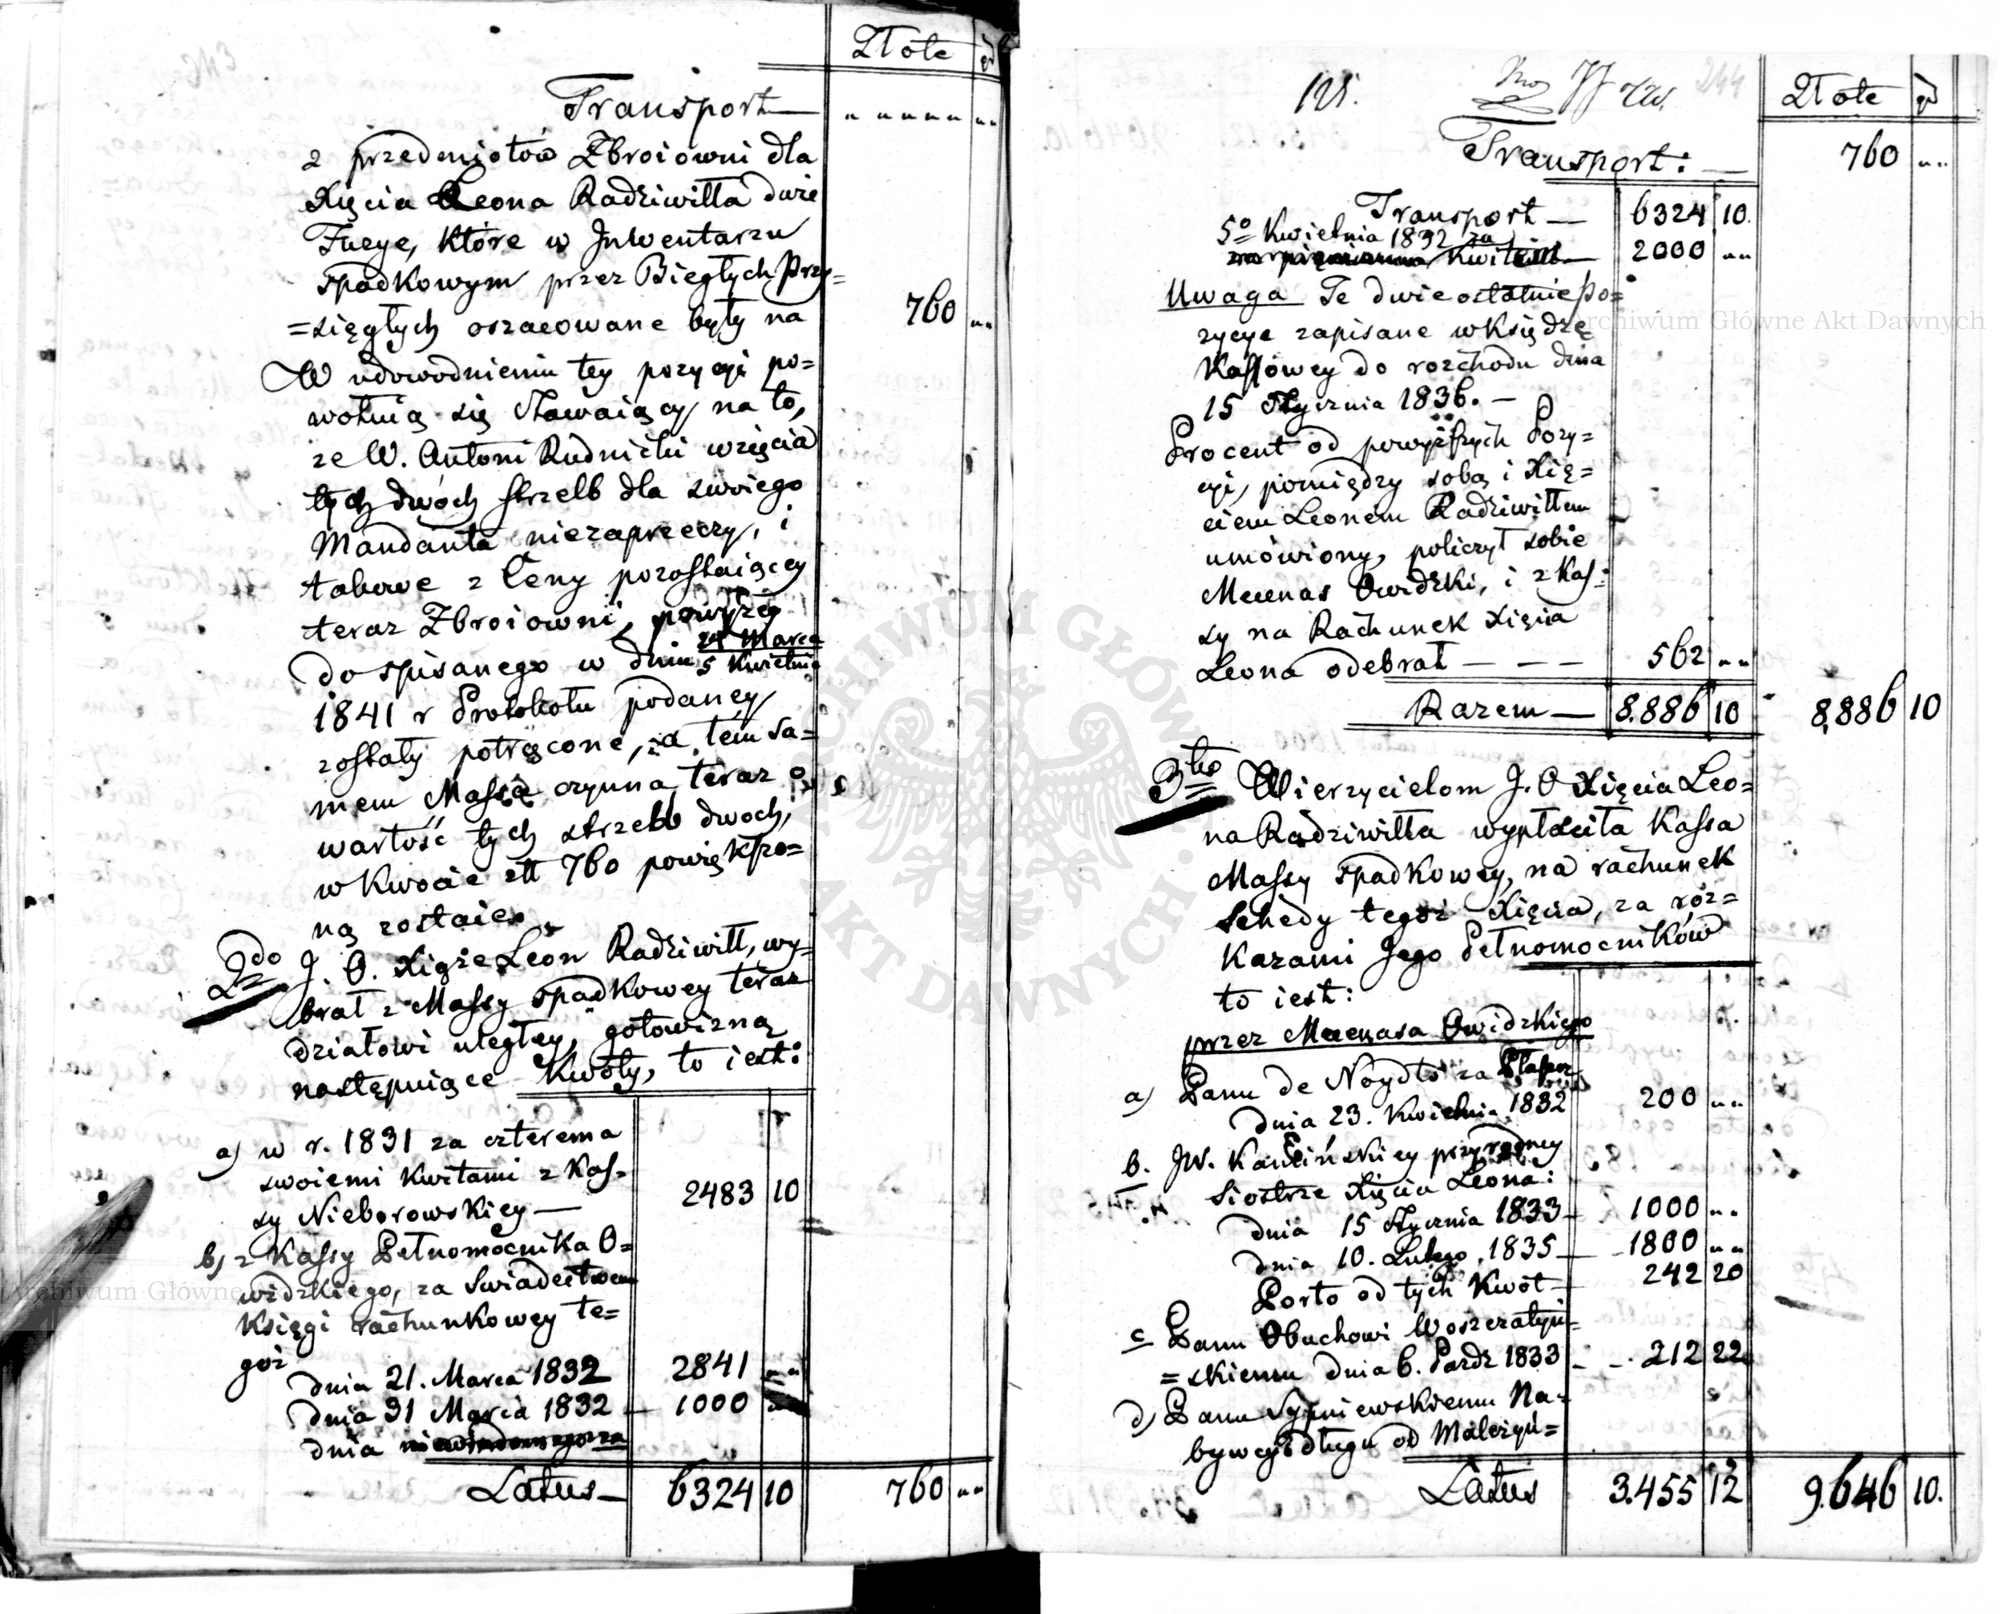 Złote gr
Transport —
z przedmiotów Zbroiowni dla
Xięcia Leona Radziwiłła dwie
Fuzye, które w Inwentarzu
spadkowym przez Biegłych Przy=
=sięgłych oszacowane były na 760 „
W udowodnieniu tey pozycyi po=
wołuią się Stawaiący na to,
że W. Antoni Rudnicki wzięcia
tych dwóch strzelb dla swoiego
Mandanta niezaprzeczy, i
takowe z Ceny pozostaiącey
teraz Zbroiowni, powyżey
do spisanego w dniu 24 Marca
5 Kwietnia
1841 r Protokołu podaney
zostały potrącone, a tém sa=
mem Massa czynna teraz o
wartość tych strzelb dwóch,
w kwocie złł 760 powiększo=
ną zostaie.
2do J. O. Xiąże Leon Radziwiłł, wy=
brał z Massy spadkowey teraz
działowi uległey, gotowizną
następuiące Kwoty, to iest:
a) w r. 1831 za czterema
swoiemi kwitami z Kas=
sy Nieborowskiey — 2483 10
b) z Kassy Pełnomocnika O=
widzkiego, za Swiadectwem
Księgi rachunkowey te=
goż
dnia 21. Marca 1832 2841 „
dnia 31 Marca 1832 — 1000 „
dnia
Latus — 6324 10 760 „
121. 244
Złote gr
Transport: — 760 „
Transport — 6324 10.
5º Kwietnia 1832 za
Kwitem — 2000 „
Uwaga Te dwie ostatnie po=
zycye zapisane w Księdze
Kassowey do rozchodu dnia
15 Stycznia 1836. —
Procent od powyższych Pozy=
cyi, pomiędzy sobą i Xię=
ciem Leonem Radziwiłłem
umówiony, policzył sobie
Mecenas Owidzki, i z Kas=
sy na Rachunek Xięcia
Leona odebrał — — — 562 „
Razem — 8.886 10 8,886 10
3tio Wierzycielom J. O Xięcia Leo=
na Radziwiłła wypłaciła Kassa
Massy spadkowey, na rachunek
Schedy tegoż Xięcia, za roz=
kazami Jego Pełnomocników
to iest:
przez Mecenasa Owidzkiego
a) Panu de Noydto za
dnia 23. Kwietnia 1832 200 „
b. JW. Kamińskiey przyrodney
Siostrze Xięcia Leona:
dnia 15 Stycznia 1833 — 1000 „
dnia 10. Lutego 1835 — 1800 „
Porto od tych Kwot — 242 20
c Panu Obuchowi Woszczatyń=
=skiemu dnia 6. Paźdz 1833 — 212 22
d) Panu Sypniewskiemu Na=
bywcy długu od Malczyń=
Latus 3.455 12 9.646 10.
Archiwum Główne Akt Dawnych
Archiwum Główne Akt Dawnych
ARCHIWUM GŁÓWNE AKT DAWNYCH